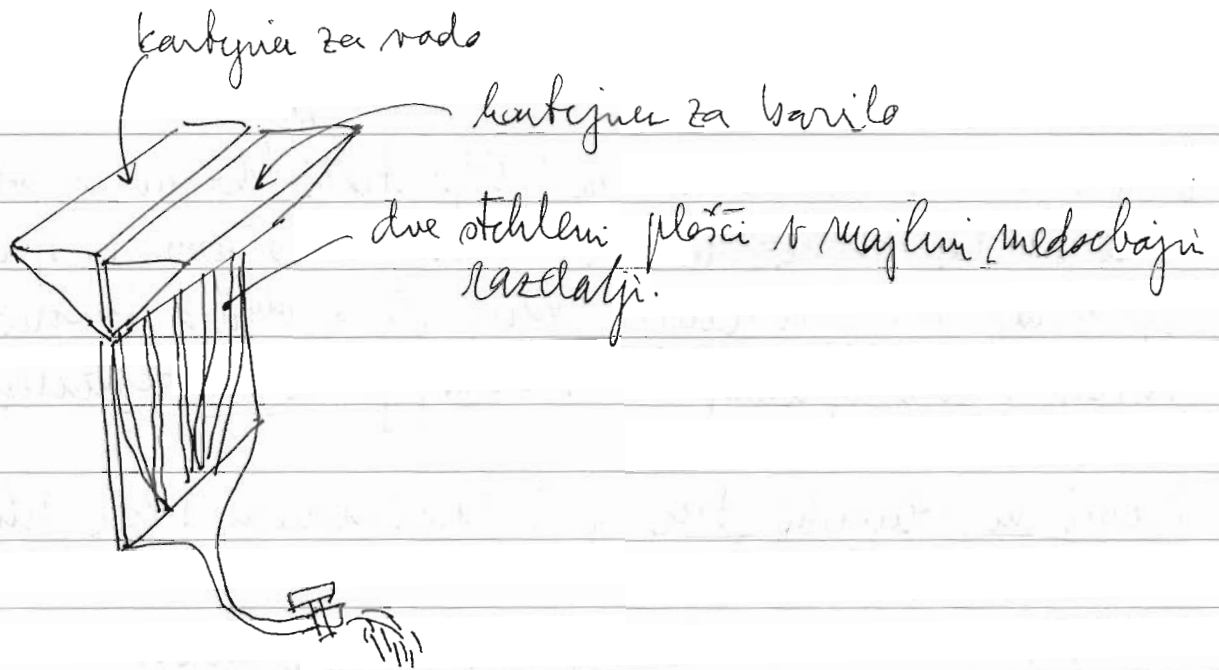 kontejner za vodo
kontejner za barvilo
dve stekleni plošči v majhni medsebojni
razdalji.